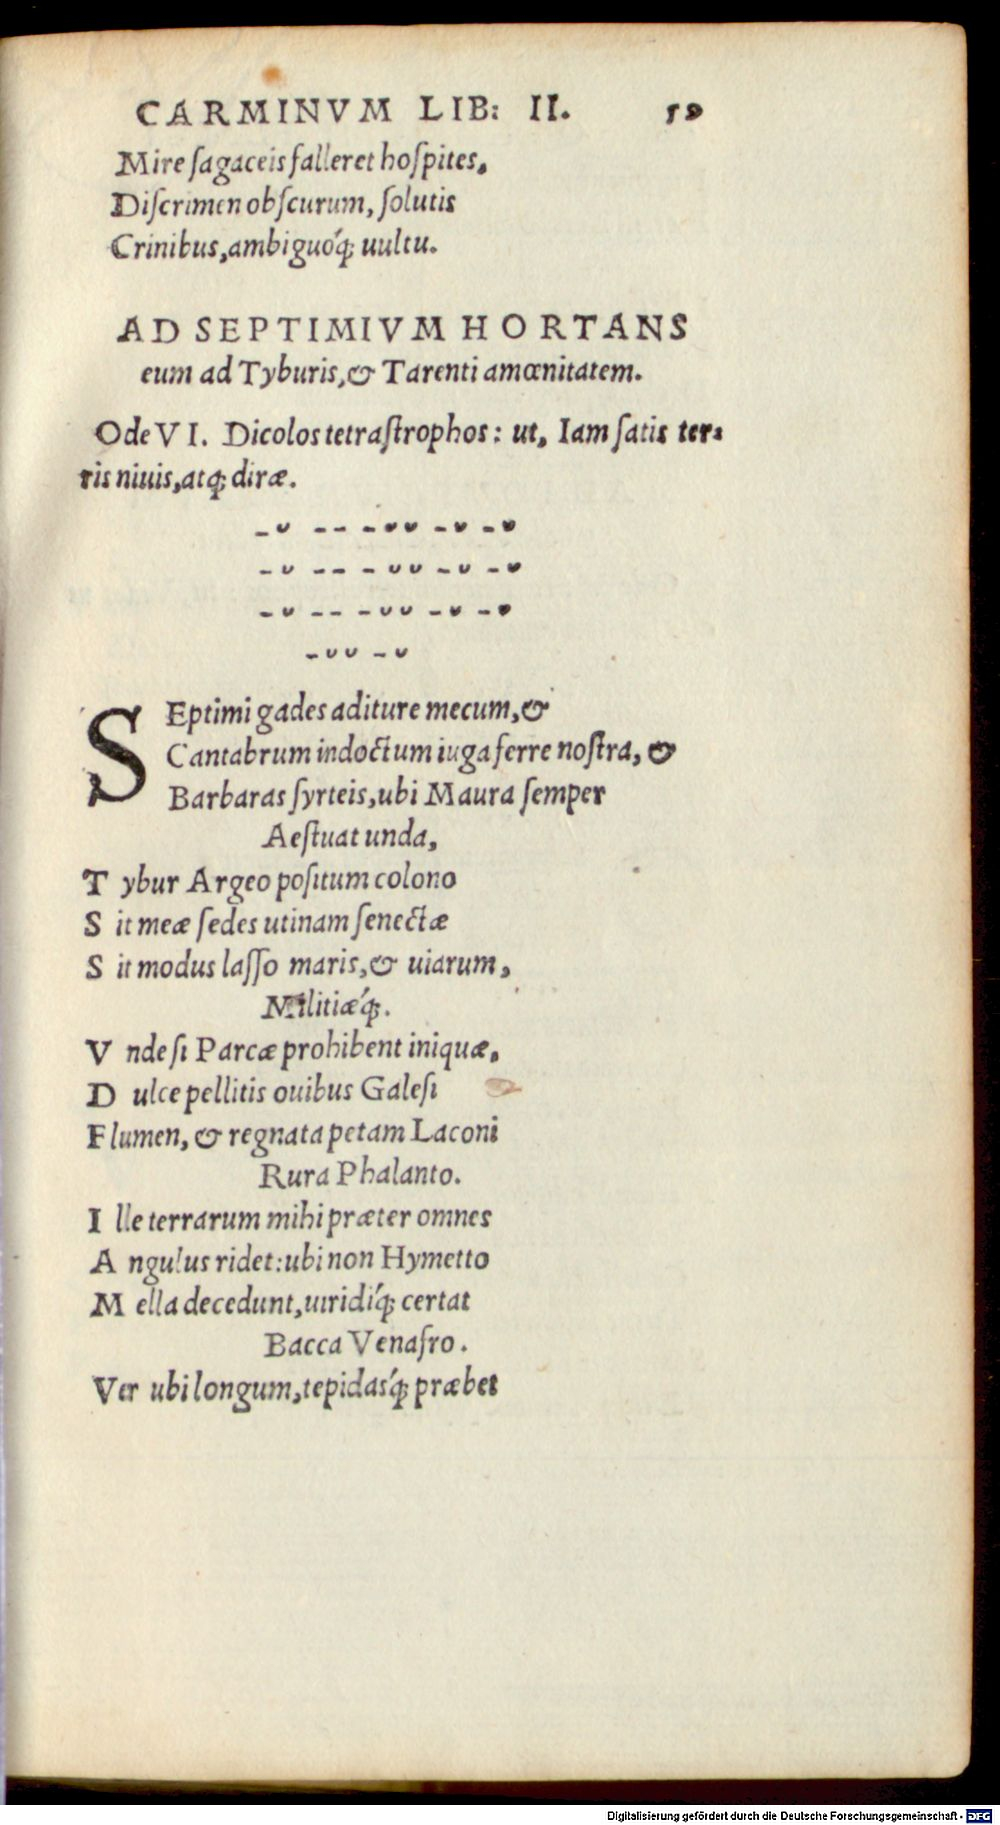 CARMINVM LIB: II. 59
Mire ſagaceis falleret hoſpites,
Diſcrimen obſcurum, ſolutis
Crinibus, ambiguóq; uultu.
AD SEPTIMIVM HORTANS
eum ad Tyburis, & Tarenti amœnitatem.
Ode VI. Dicolos tetraſtrophos: ut, Iam ſatis ter-
ris niuis, atq; diræ.
–⏑ –– –⏑⏑ –⏑ –⏑
–⏑ –– –⏑⏑ –⏑ –⏑
–⏑ –– –⏑⏑ –⏑ –⏑
–⏑⏑ –⏑
SEptimi gades aditure mecum, &
Cantabrum indoctum iuga ferre noſtra, &
Barbaras ſyrteis, ubi Maura ſemper
Aeſtuat unda,
Tybur Argeo poſitum colono
Sit meæ ſedes utinam ſenectæ
Sit modus laſſo maris, & uiarum,
Militiǽq;.
Vnde ſi Parcæ prohibent iniquæ,
Dulce pellitis ouibus Galeſi
Flumen, & regnata petam Laconi
Rura Phalanto.
Ille terrarum mihi præter omnes
Angulus ridet: ubi non Hymetto
Mella decedunt, uiridíq; certat
Bacca Venafro.
Ver ubi longum, tepidasq́; præbet
Digitalisierung gefördert durch die Deutsche Forschungsgemeinschaft - DFG